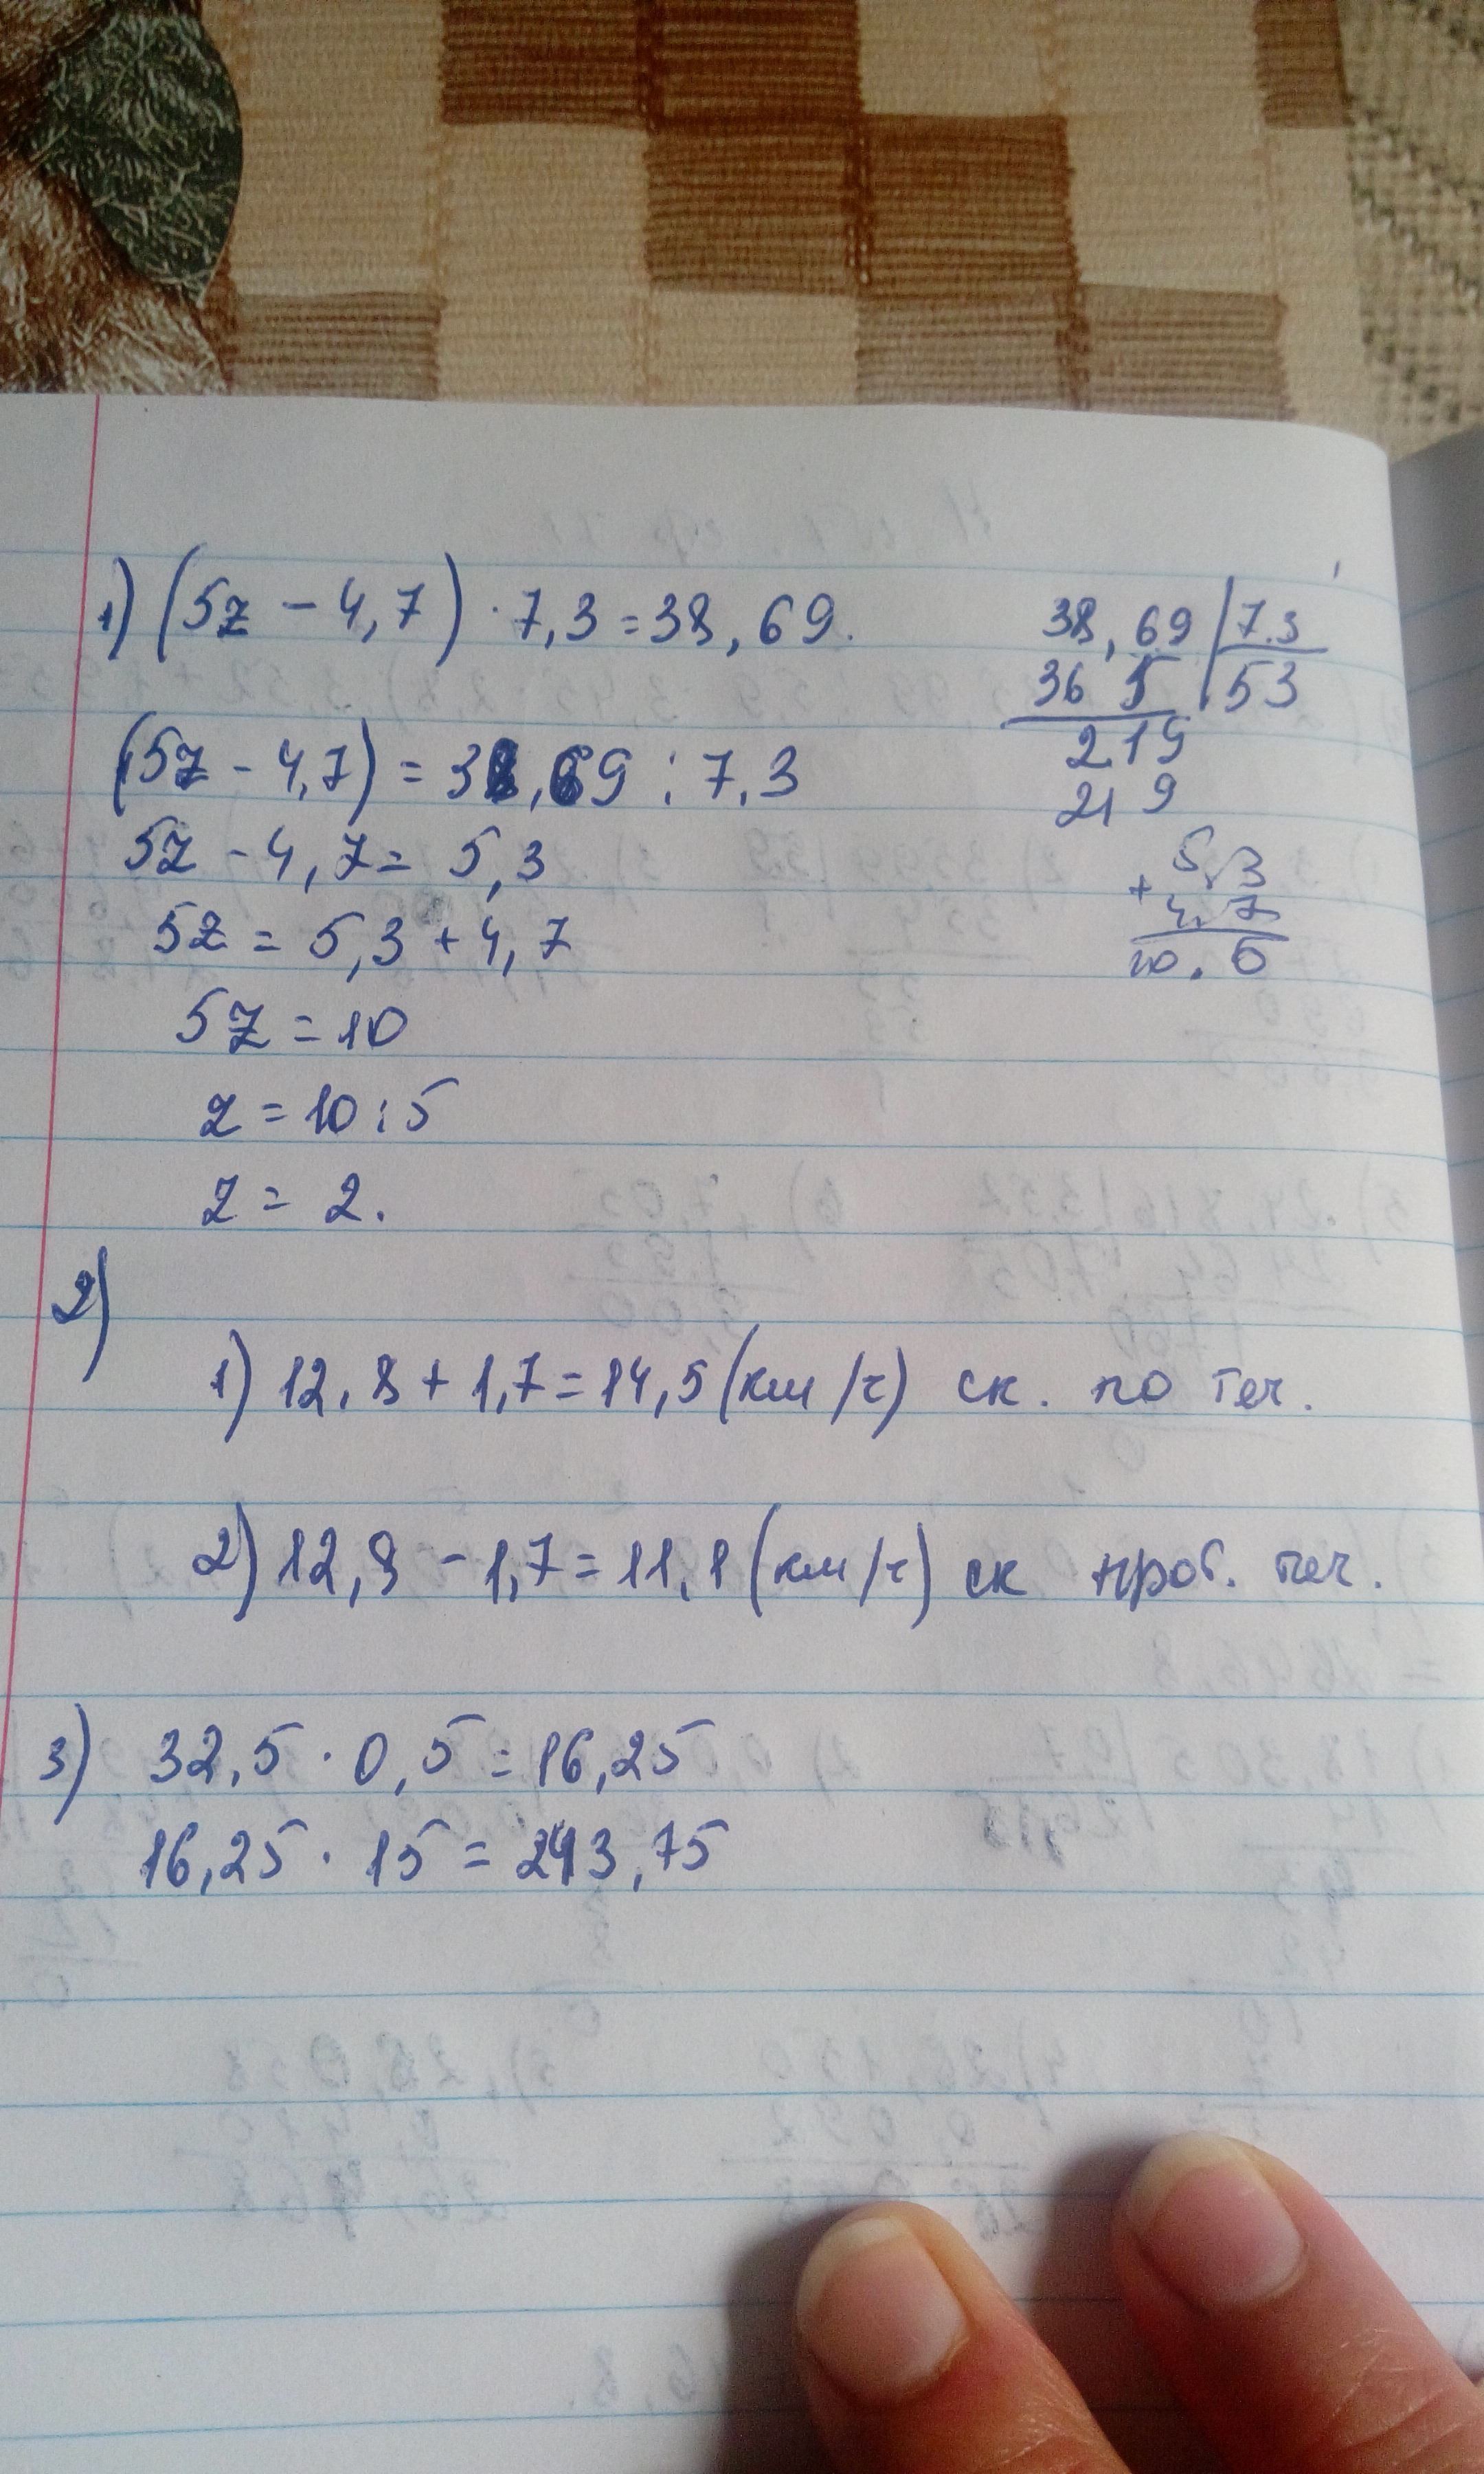 1) (5z - 4,7) · 7,3 = 38,69.
38,69 | 7.3
36 5 | 53
219
219
(5z - 4,7) = 38,69 : 7,3
5z - 4,7 = 5,3
5,3
+
4,7
10.0
5z = 5,3 + 4,7
5z = 10
z = 10 : 5
z = 2.
2)
1) 12,8 + 1,7 = 14,5 (км/ч) ск. по теч.
2) 12,8 - 1,7 = 11,1 (км/ч) ск прот. теч.
3) 32,5 · 0,5 = 16,25
16,25 · 15 = 243,75